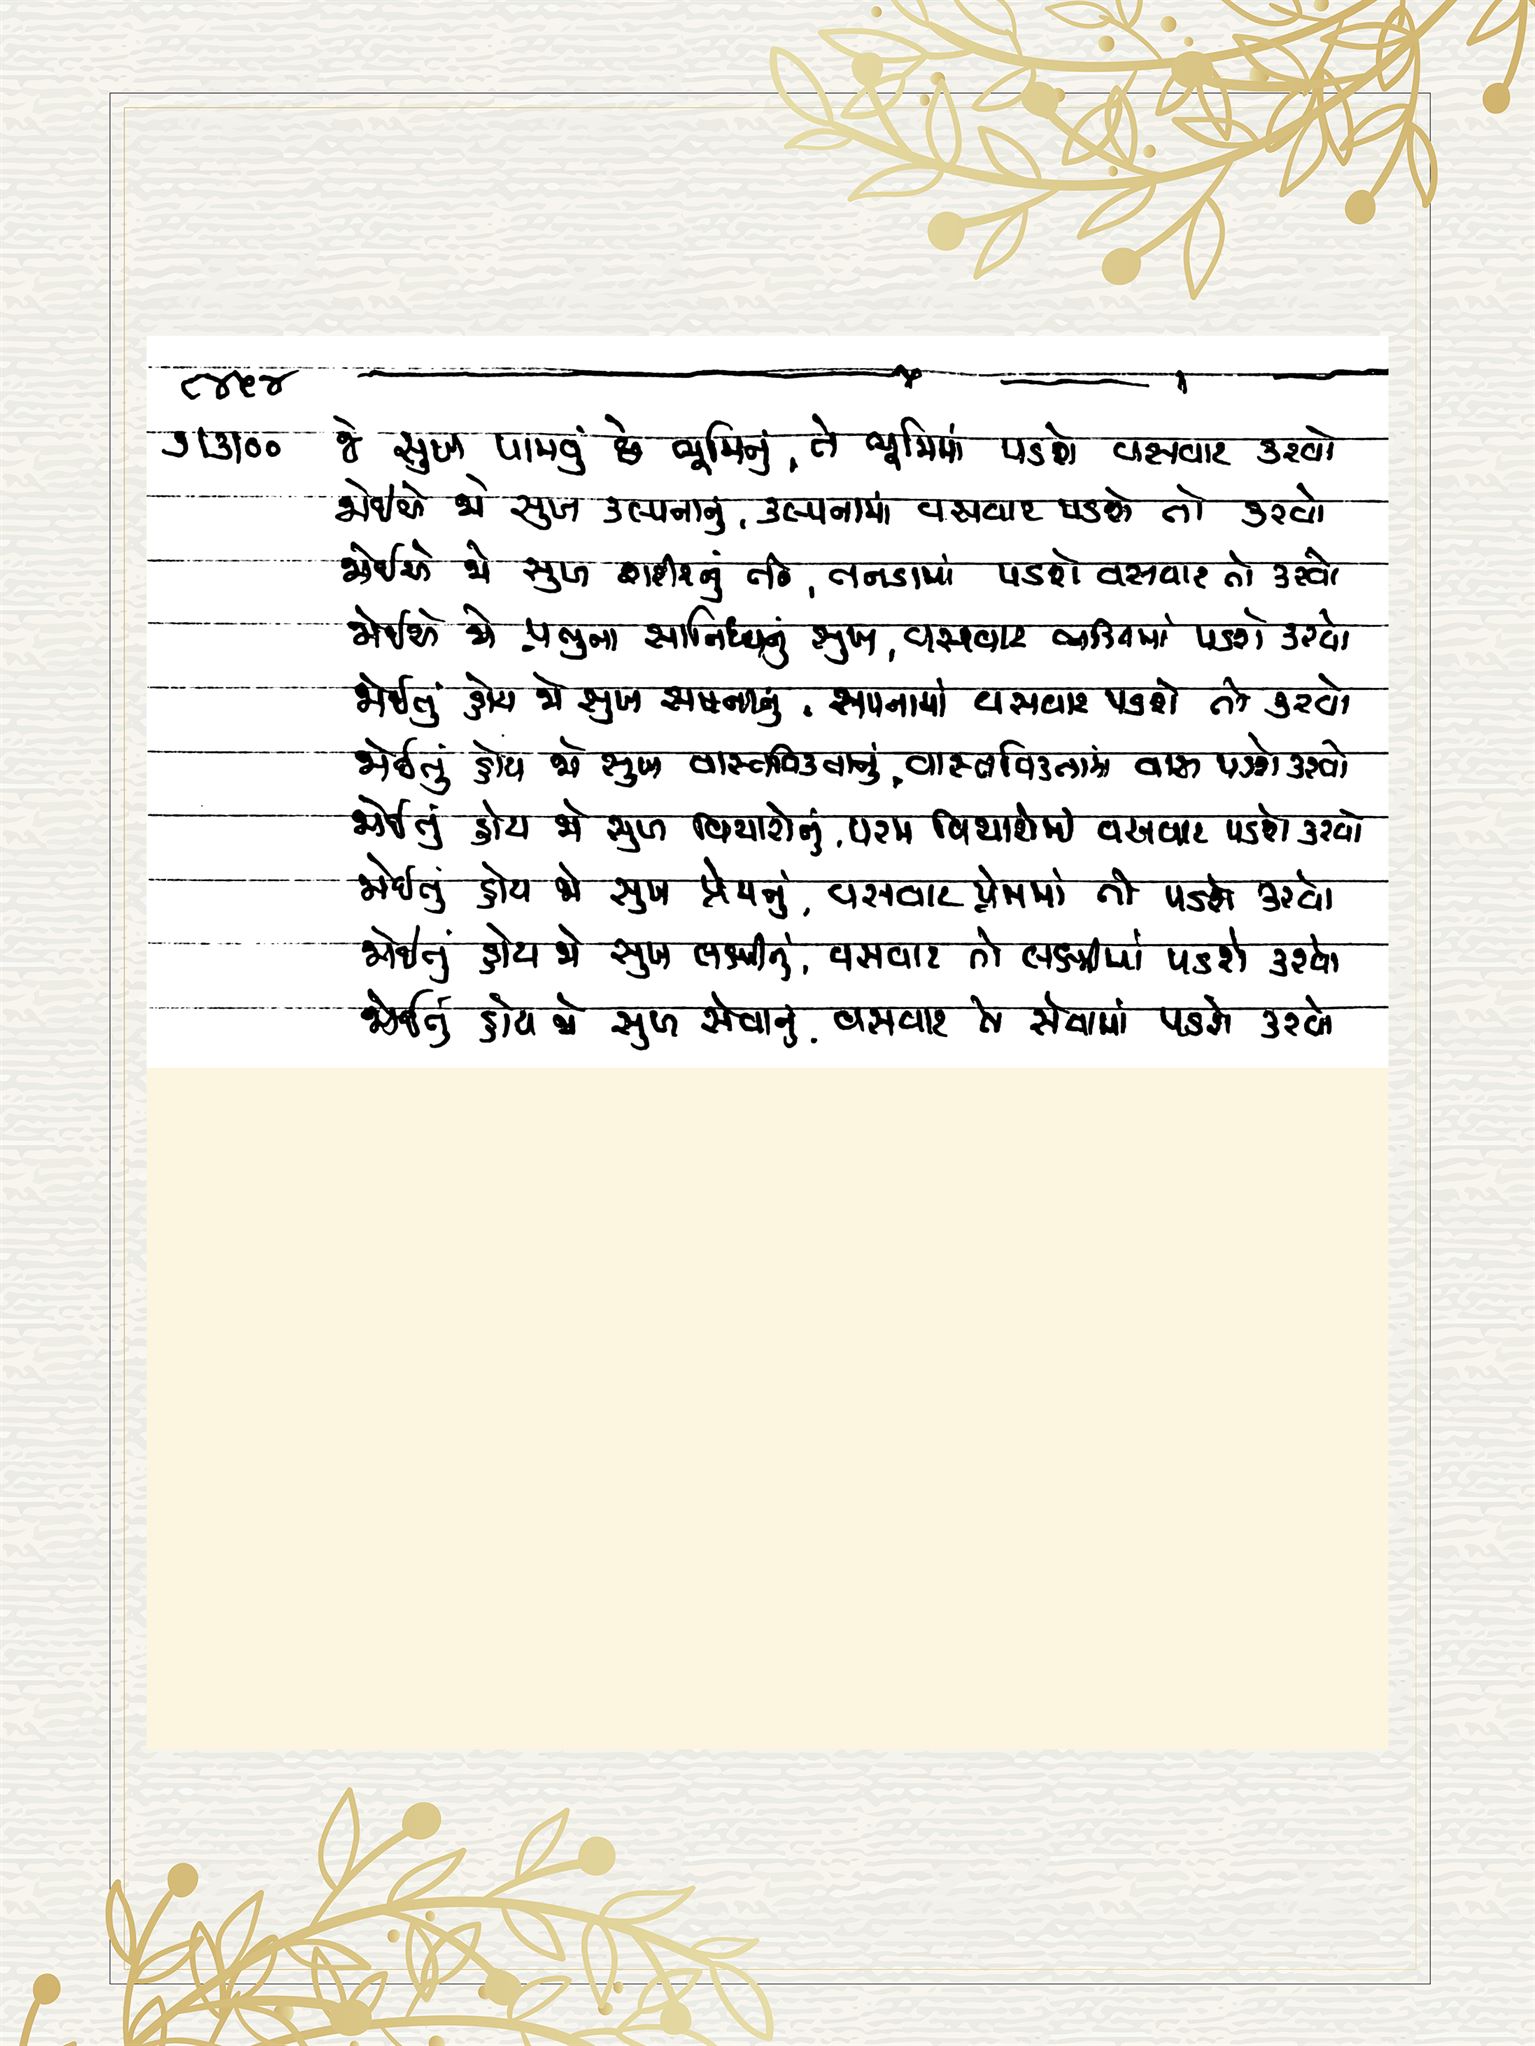 ૮૪૫૪
૭/૩/૦૦ જે સુખ પામવું છે ભૂમિનું, તે ભૂમિમાં પડશે વસવાટ કરવો
જોઈએ જો સુખ કલ્પનાનું, કલ્પનામાં વસવાટ પડશે તો કરવો
જોઈએ જો સુખ શરીરનું તો, તનડામાં પડશે વસવાટ તો કરવો
જોઈએ જો પ્રભુના સાનિધ્યનું સુખ, વસવાટ ભક્તિમાં પડશે કરવો
જોઈતું હોય જો સુખ સપનાનું, સપનામાં વસવાટ પડશે તો કરવો
જોઈતું હોય જો સુખ વાસ્તવિકતાનું, વાસ્તવિકતામાં વાસ પડશે કરવો
જોઈતું હોય જો સુખ વિચારોનું, પરમ વિચારોમાં વસવાટ પડશે કરવો
જોઈતું હોય જો સુખ પ્રેમનું, વસવાટ પ્રેમમાં તો પડશે કરવો
જોઈતું હોય જો સુખ લક્ષ્મીનું, વસવાટ તો લક્ષ્મીમાં પડશે કરવો
જોઈતું હોય જો સુખ સેવાનું, વસવાટ તો સેવામાં પડશે કરવો